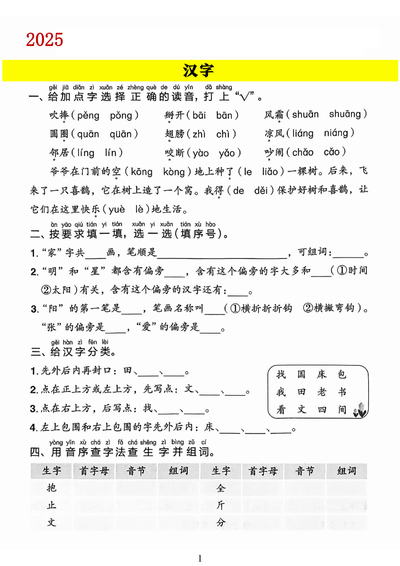 2025
汉字
gěi jiā diǎn zì xuǎn zé zhèng què de dú yīn dǎ shàng
一、给加点字选择正确的读音,打上“√”。
吹捧(pěng pǒng) 掰开(bāi bān) 风霜(shuān shuāng)
圆圈(quān quān) 翅膀(zhì chì) 凉风(liáng niáng)
邻居(líng lín) 咬断(yǎo yáo) 吵闹(chǎo cǎo)
爷爷在门前的空(kōng kòng)地上种了(le liǎo)一棵树。后来,飞
来了一只喜鹊,它在树上造了一个窝。我得(de děi)保护好树和喜鹊,让
它们在这里快乐(yuè lè)地生活。
àn yāo qiú tián yi tián xuǎn yi xuǎn tián xù hào
二、按要求填一填,选一选(填序号)。
1.“家”字共____画,笔顺是____________________,可组词:______。
2.“明”和“星”都含有偏旁______,含有这个偏旁的字大多和____(①时间
②太阳)有关,含有这个偏旁的汉字还有:____、____。
3.“阳”的第一笔是____,笔画名称叫____(①横折折折钩 ②横撇弯钩)。
“张”的偏旁是____,“爱”的偏旁是____。
gěi hàn zì fēn lèi
三、给汉字分类。
1.先外后内再封口:田、____、____。
2.点在正上方或左上方,先写点:文、____、____。
3.点在右上方,后写点:找、____、____。
4.左上包围和右上包围的字先外后内:床、____、____、____。
找 国 床 包
我 田 老 书
看 文 四 间
yòng yīn xù chá zì fǎ chá shēng zì bìng zǔ cí
四、用音序查字法查生字并组词。
生字 首字母 音节 组词 生字 首字母 音节 组词
抱 全
止 斤
文 分
1